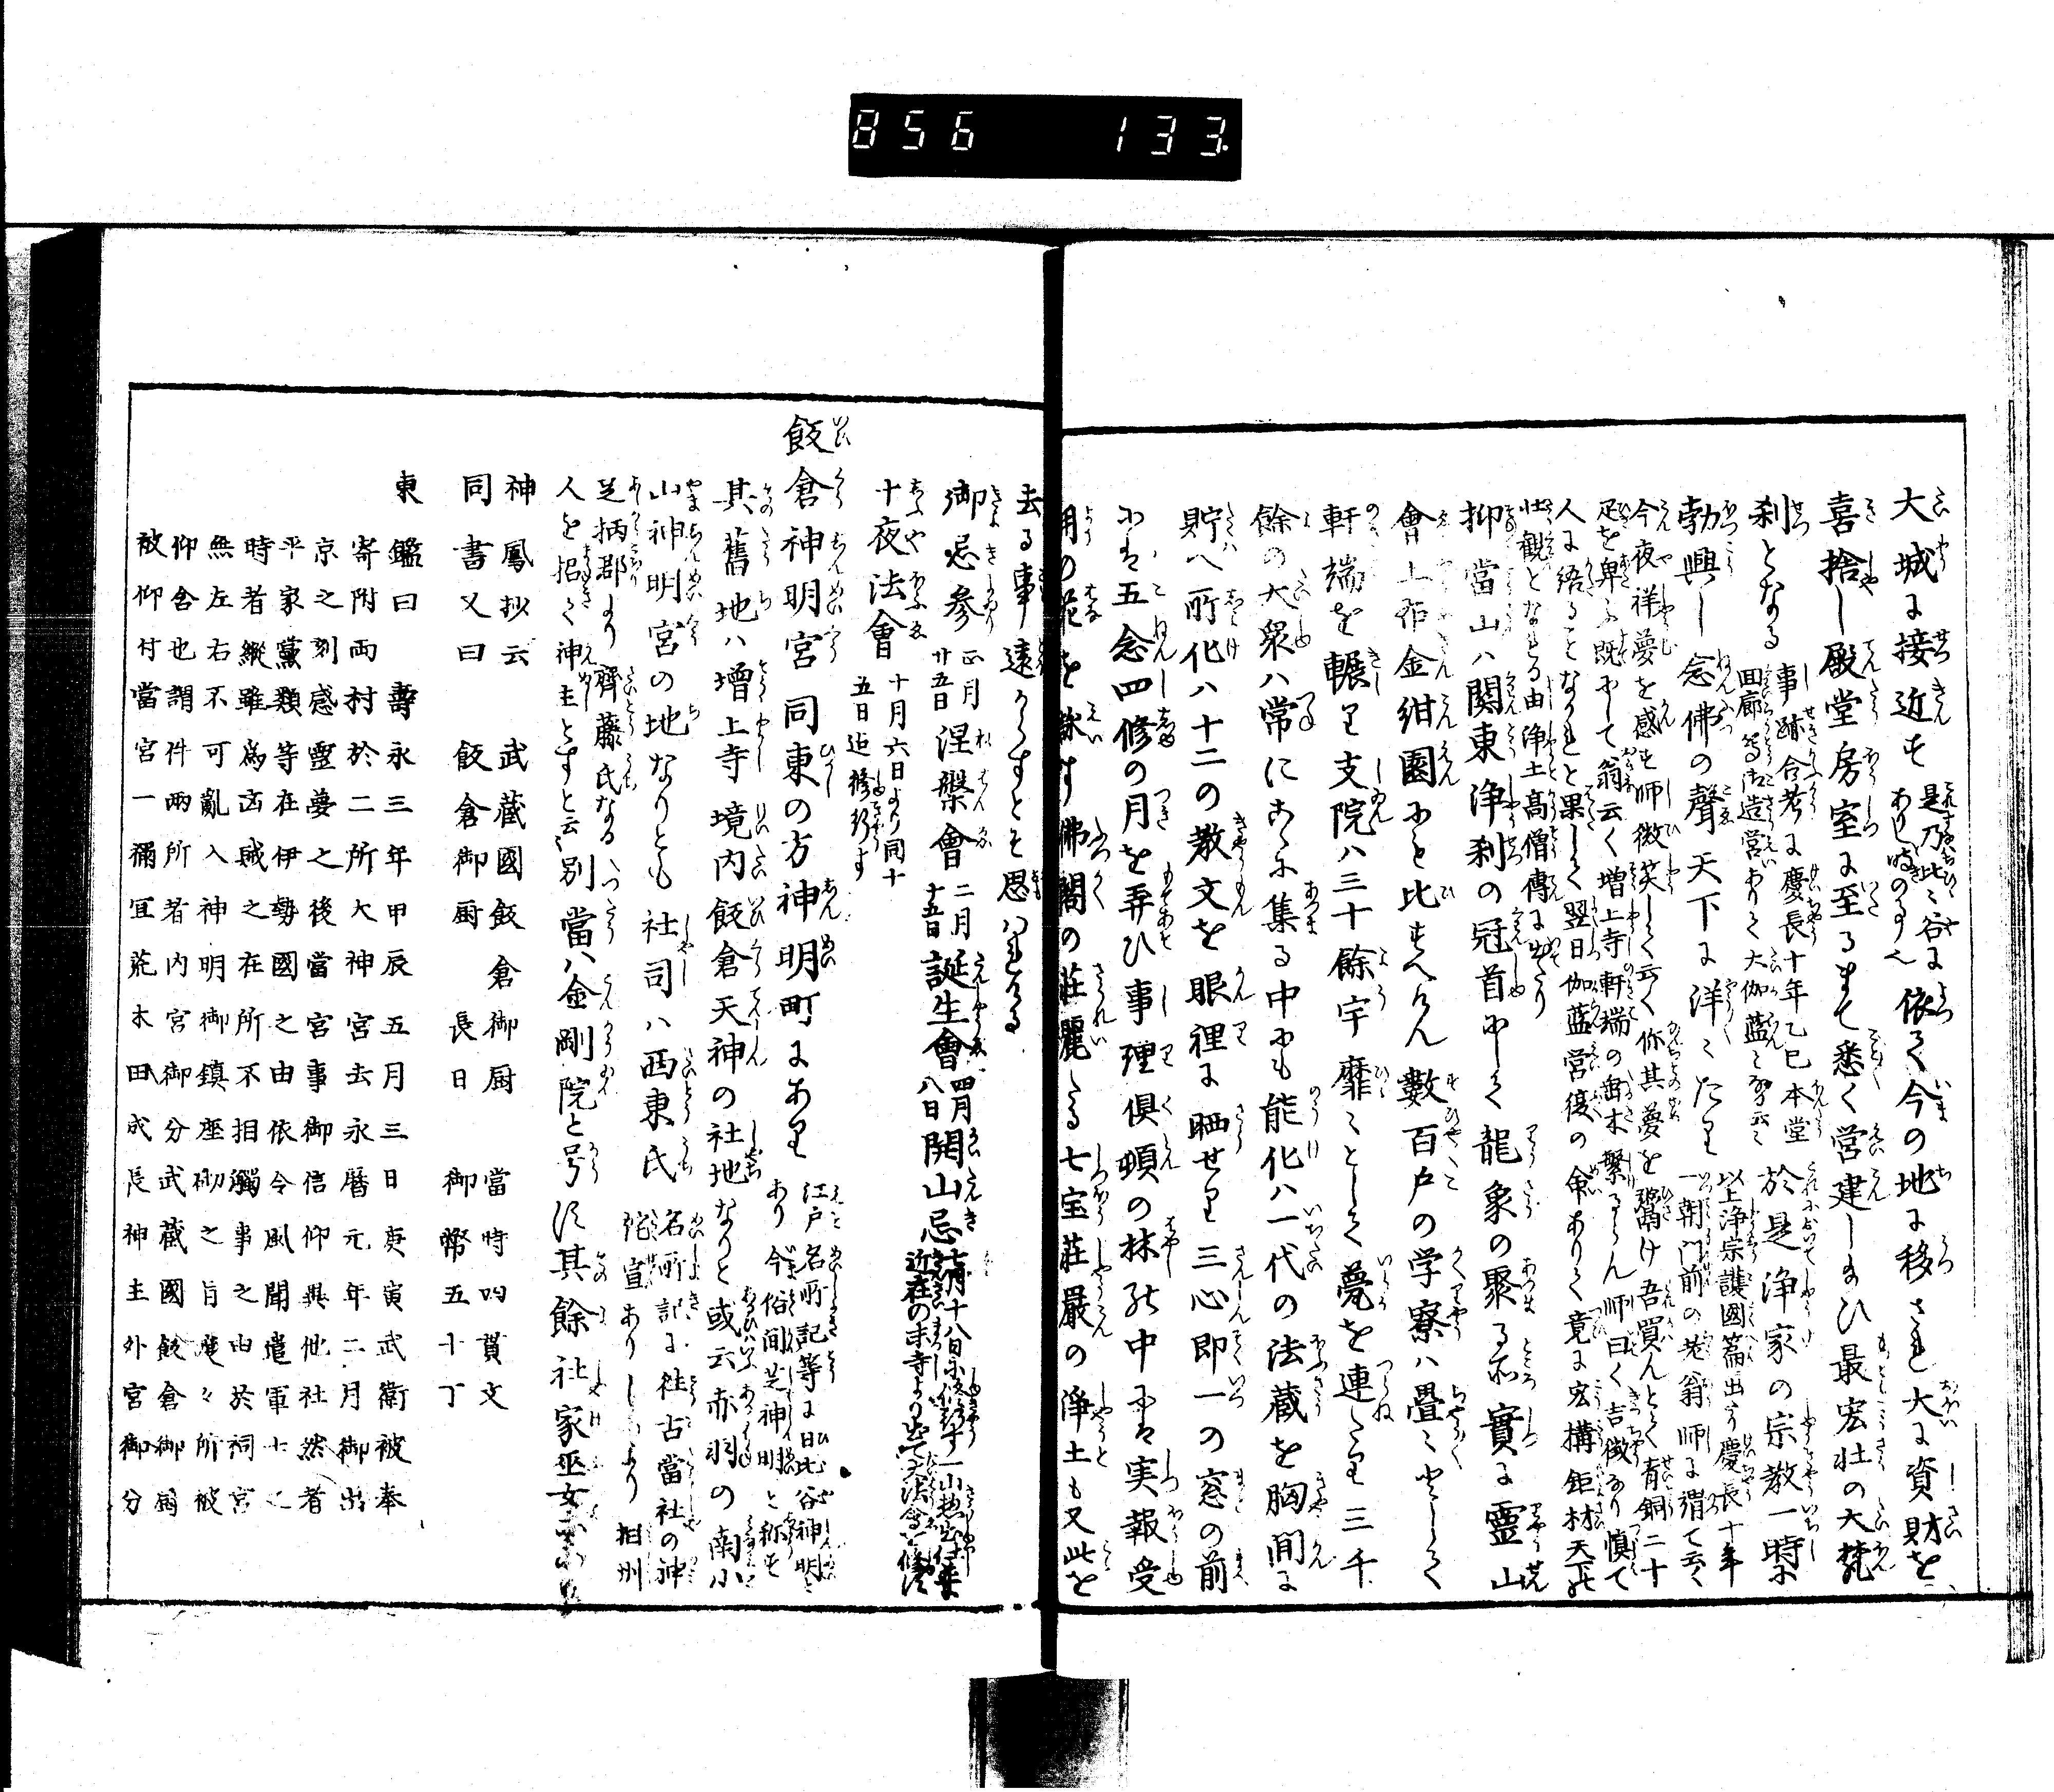 856 133
大城に接近す 是乃比々谷に ありし時の事也 依て今の地に移され大に資財を
喜捨し殿堂房室に至るまて悉く営建し玉ひ最宏壮の大梵
刹となる 事跡合考に慶長十年乙巳本堂 回廊等御造営ありて大伽藍と
於是浄家の宗教一時に
勃興し念佛の聲天下に洋々たり 以上浄宗護國篇に出つ慶長十年 一朝門前の老翁師に謂て云く
今夜祥夢を感す師微笑して云く你其夢を
吾買んとて青銅二十
足を 既にして翁云く増上寺軒端の 木繁るらん師曰く吉徴あり慎て
人に語ることなかれと果して翌日伽藍営復の命ありて竟に宏構鉅材天下の
壮観となれる由浄土高僧傳に出たり
抑當山ハ関東浄刹の冠首にして龍象の聚る所實に霊山
會上祇金紺園にも比すへけん數百戸の学寮ハ畳々として
軒端を輾り支院ハ三十餘宇靡々として甍を連たり三千
餘の大衆ハ常にこゝに集る中にも能化ハ一代の法蔵を胸間に
貯へ所化ハ十二の教文を眼裡に晒せり三心即一の窓の前
にハ五念四修の月を弄ひ事理倶頓の林の中にハ実報受
用の花を詠す佛閣の荘麗たる七宝荘嚴の浄土も又此を
去る事遠からすとそ思はれける
御忌参 正月廿五日 涅槃會 二月十五日 誕生會 四月八日 開山忌 七月十八日に修行す一山 近在の末寺より出て法會を修す
十夜法會 十月六日より同十 五日迄修行す
飯倉神明宮 同東の方神明町にあり 江戸名所記等に日比谷神明と あり今俗間芝神明と称す
其舊地ハ増上寺境内飯倉天神の社地なりと或云赤羽の南小
山神明宮の地なりとも 社司ハ西東氏 名所記に往古當社の神 託宣ありしより相州
足柄郡より齊藤氏なる
人を招きて神主とすと云々 別當ハ金剛院と号す其餘社家巫女
神鳳抄云 武蔵國飯倉御厨 當時四貫文
同書又曰 飯倉御厨 長日 御幣五十丁
東鑑曰 壽永三年甲辰五月三日庚寅武衛被奉
寄附兩村於二所大神宮去永暦元年二月御出
京之刻感靈夢之後當宮事御信仰異他社然者
平家黨類等在伊勢國之由依令風聞遣軍士之
時者縱雖為凶賊之在所不相觸事之由於祠宮
無左右不可亂入神明御鎮座砌之旨度々所被
仰含也謂件兩所者内宮御分武蔵國飯倉御厨
被仰付當宮一禰宜荒木田成長神主外宮御分